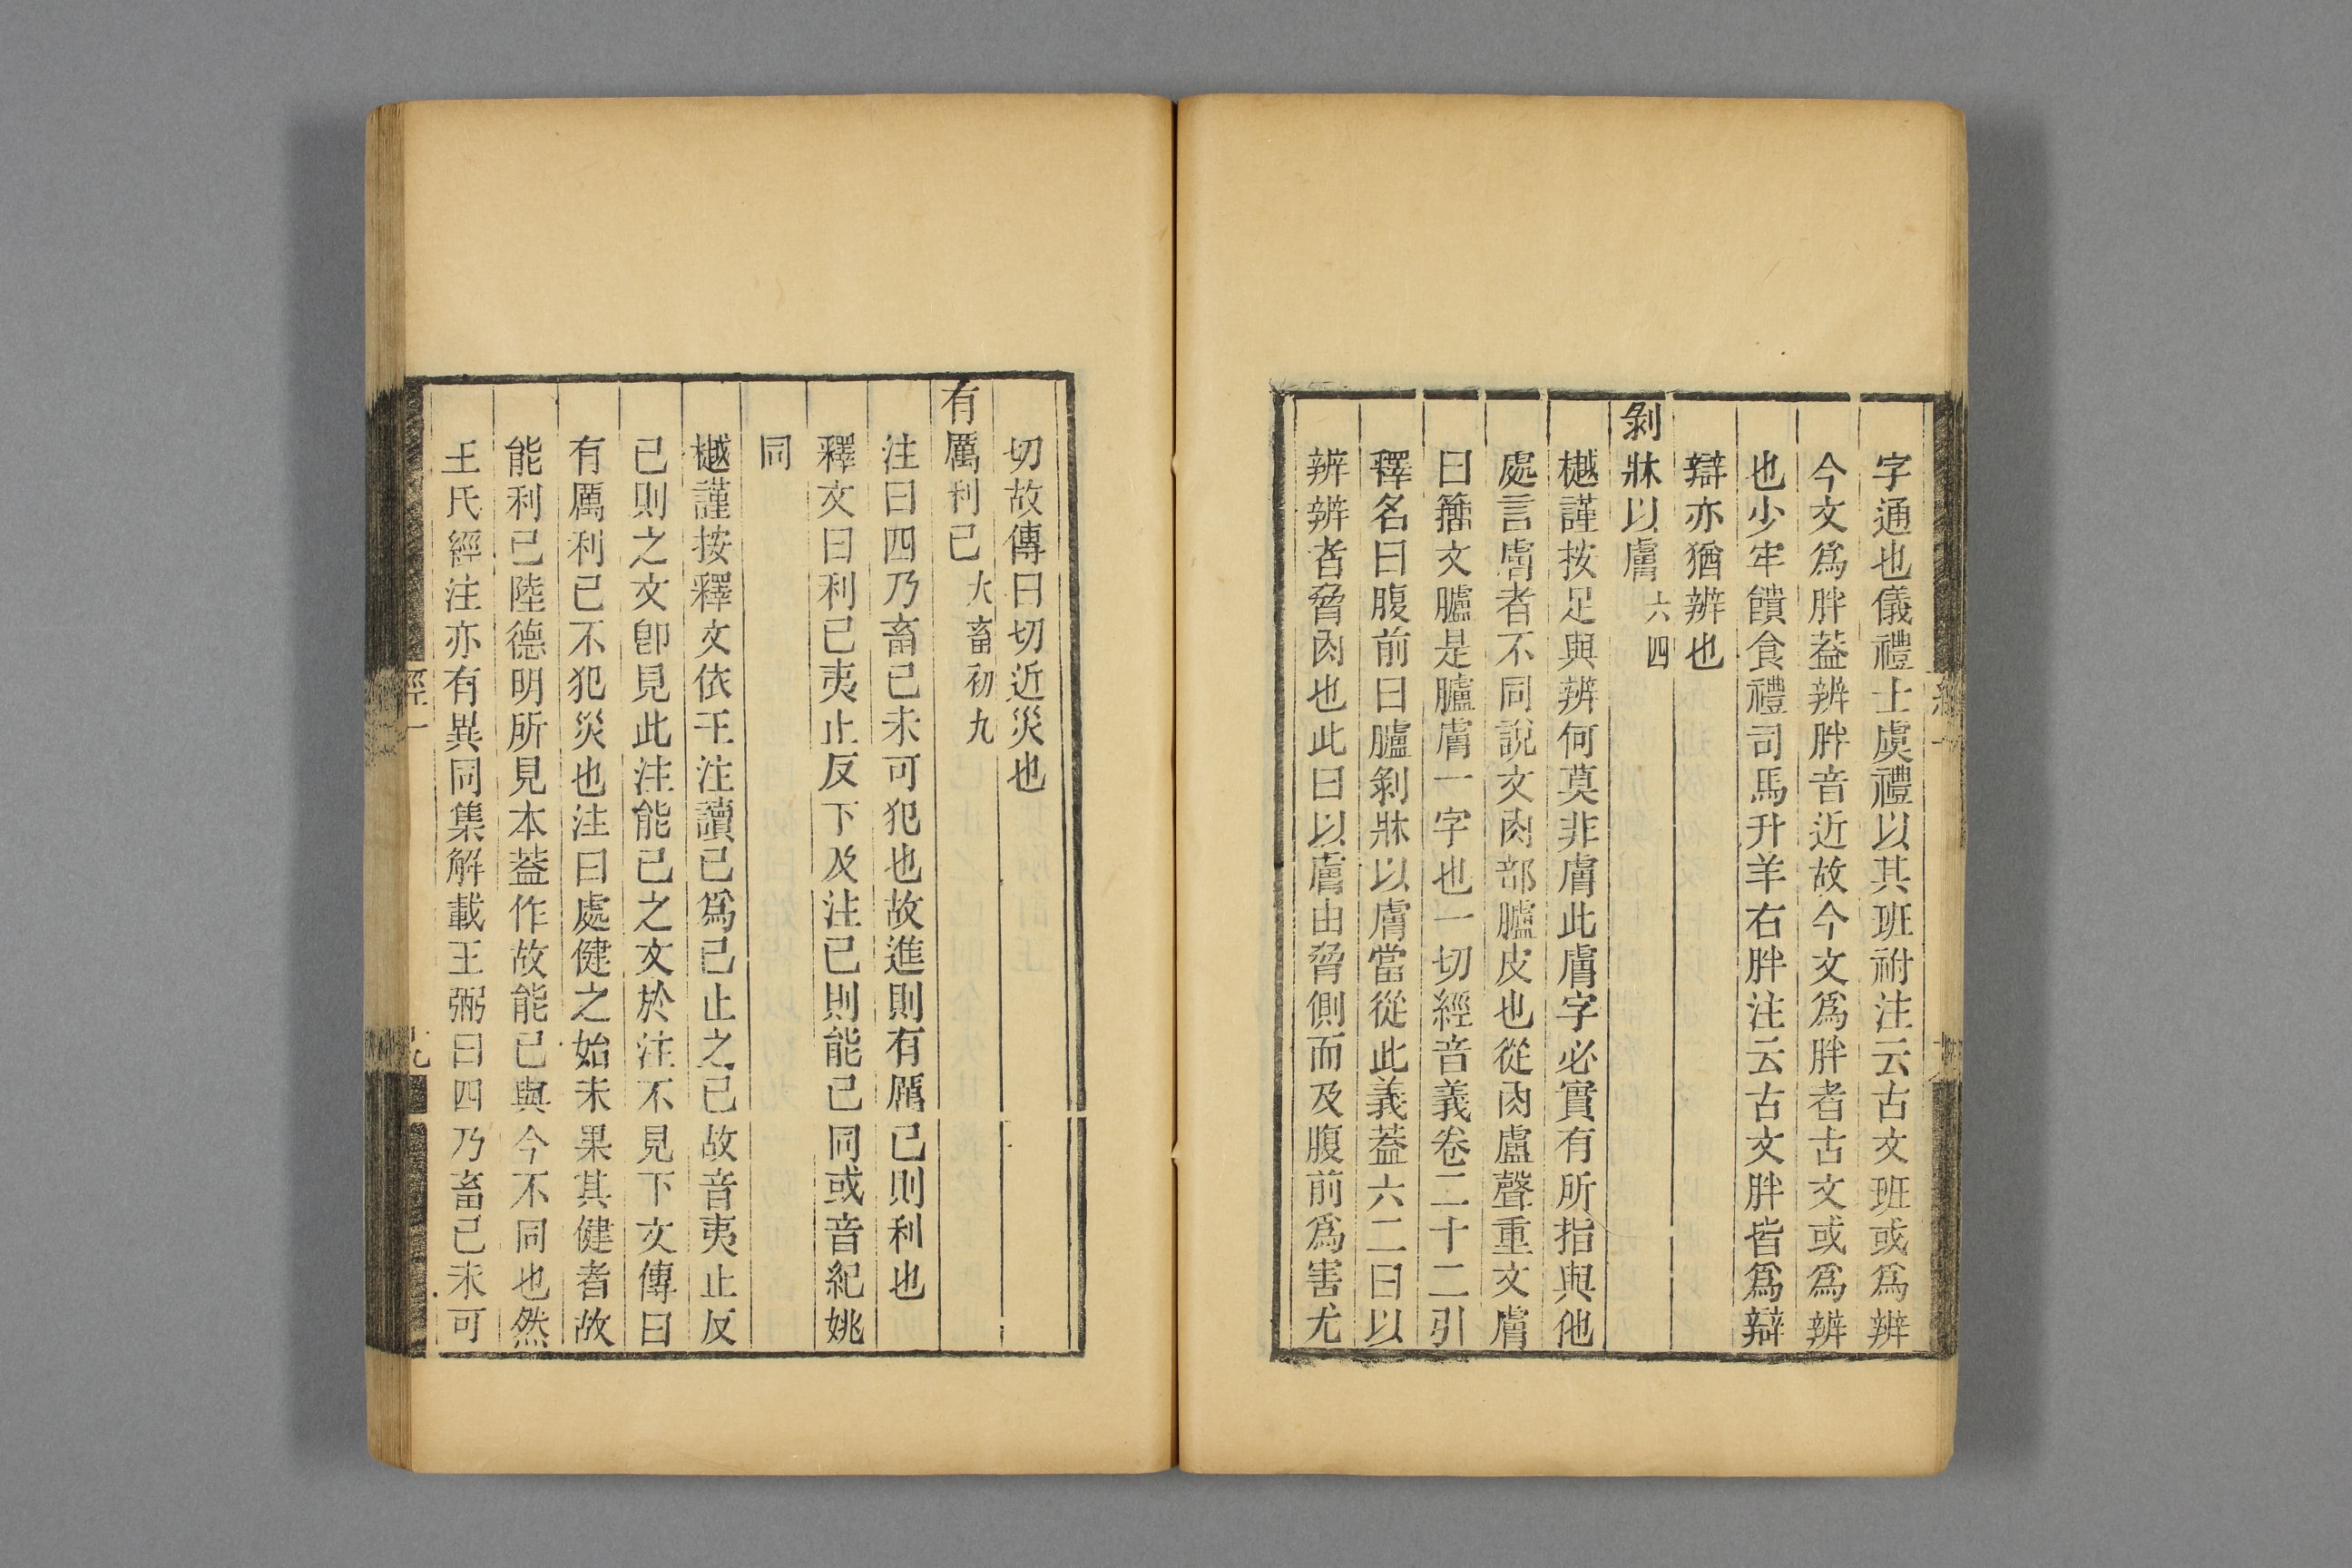 字通也儀禮士虞禮以其班祔注云古文班或爲辨
今文爲胖葢辨胖音近故今文爲胖者古文或爲辨
也少牢饋食禮司馬升羊右胖注云古文胖皆爲辯
辯亦猶辨也
剝牀以膚六四
樾謹按足與辨何莫非膚此膚字必實有所指與他
處言膚者不同說文肉部臚皮也從肉盧聲重文膚
曰籒文臚是臚膚一字也一切經音義卷二十二引
釋名曰腹前曰臚剝牀以膚當從此義葢六二曰以
辨辨者脅肉也此曰以膚由脅側而及腹前爲害尤
切故傳曰切近災也
有厲利已大畜初九
注曰四乃畜已未可犯也故進則有厲已則利也
釋文曰利已夷止反下及注已則能已同或音紀姚
同
樾謹按釋文依王注讀已爲已止之已故音夷止反
已則之文卽見此注能已之文於注不見下文傳曰
有厲利已不犯災也注曰處健之始未果其健者故
能利已陸德明所見本葢作故能已與今不同也然
王氏經注亦有異同集解載王弼曰四乃畜已未可
經一
九